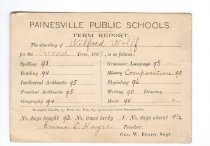 PAINESVILLE PUBLIC SCHOOLS.
TERM REPORT
The standing of Wilford Wolff
for the Second Term, 1897, is as follows:
Spelling 93 Grammar, Language 95
Reading 94 History Composition 90
Intellectual Arithmetic 95 Physiology 96
Practical Arithmetic 95 Writing 90
Geography 94 Drawing 90
Music 90
No. days taught 45 No. times tardy 1 No. days absent
Emma L. Hayes Teacher
GEO. W. READY, Supt.